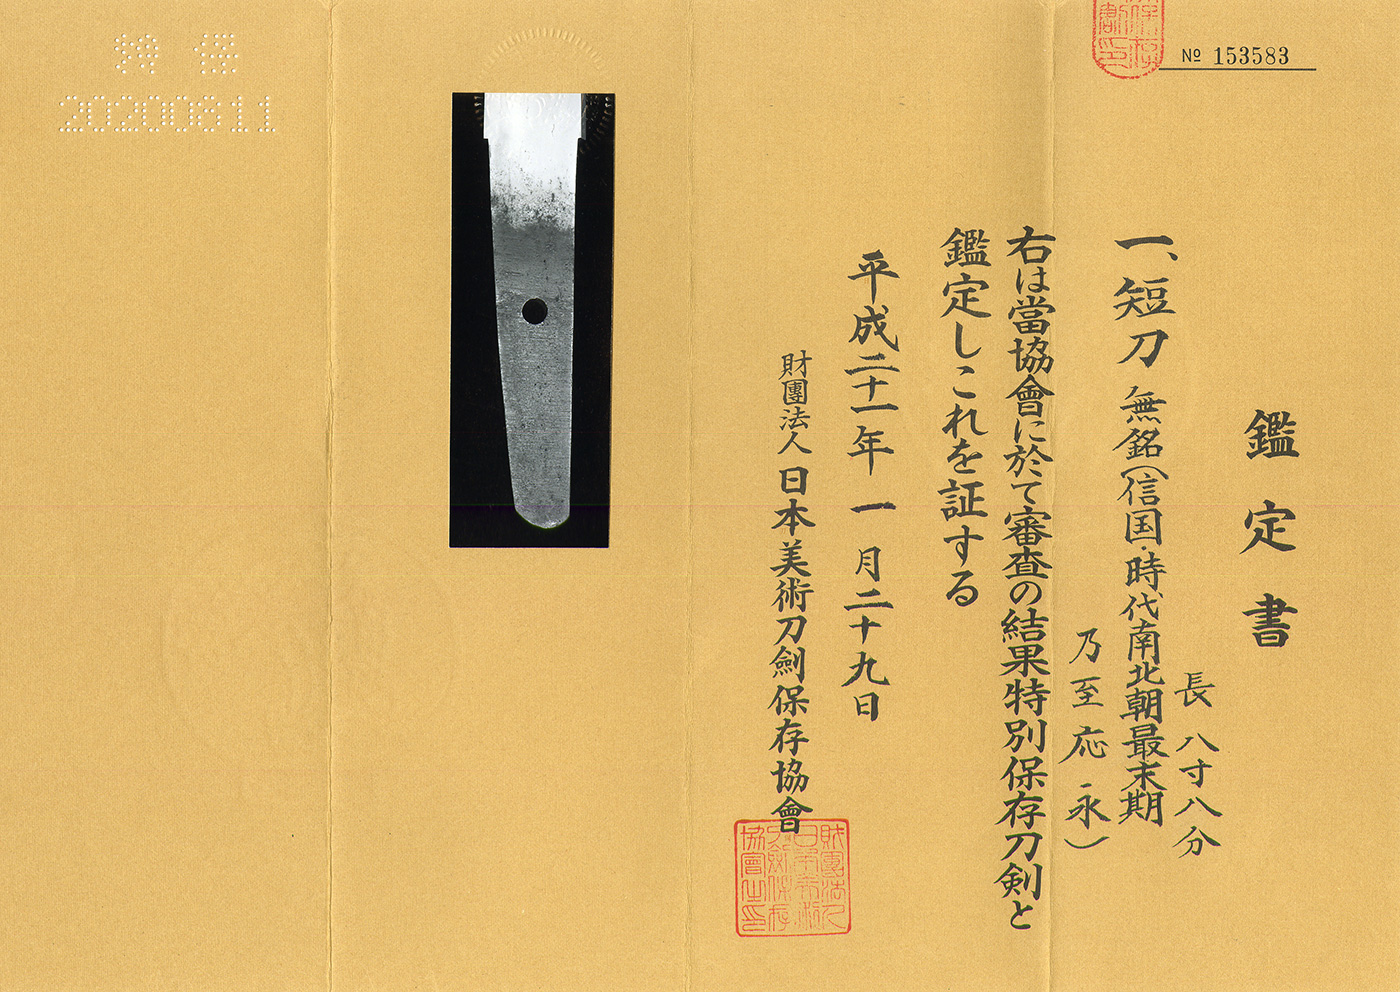 № 153583
鑑定書
長 八寸八分
一、短刀 無銘(信国・時代南北朝最末期
乃至応永)
右は當協會に於て審査の結果特別保存刀剣と
鑑定しこれを証する
平成二十一年 一月二十九日
財團法人 日本美術刀劍保存協會
財團法人日本美術刀劍保存協會之印
20200811